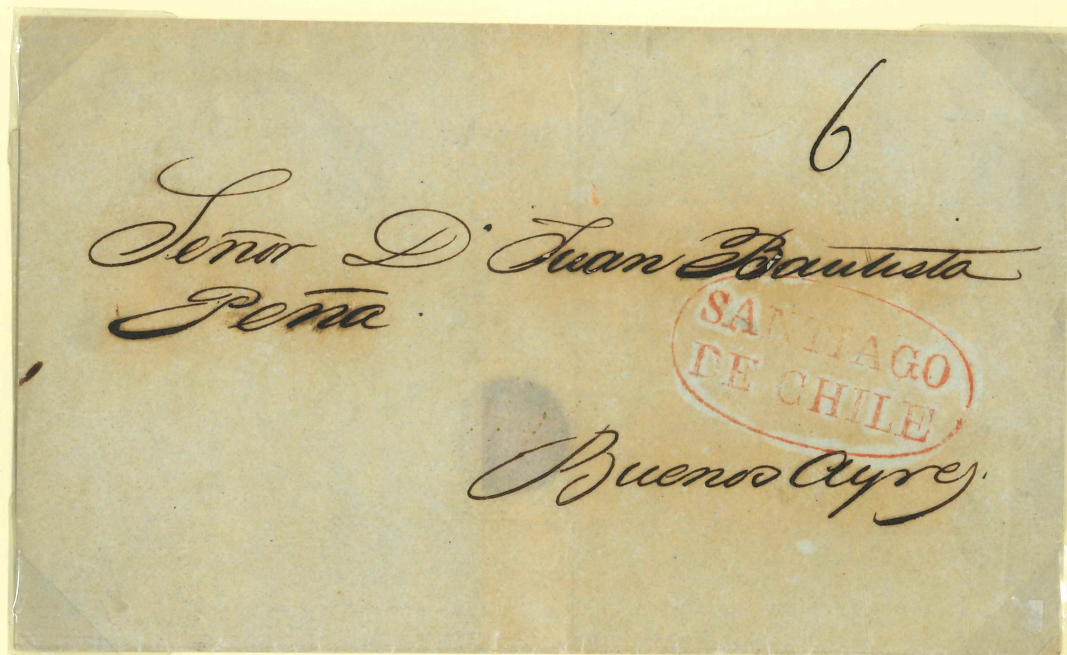 6
Señor D. Juan Bautista
Peña.
SANTIAGO
DE CHILE
Buenos Ayres.